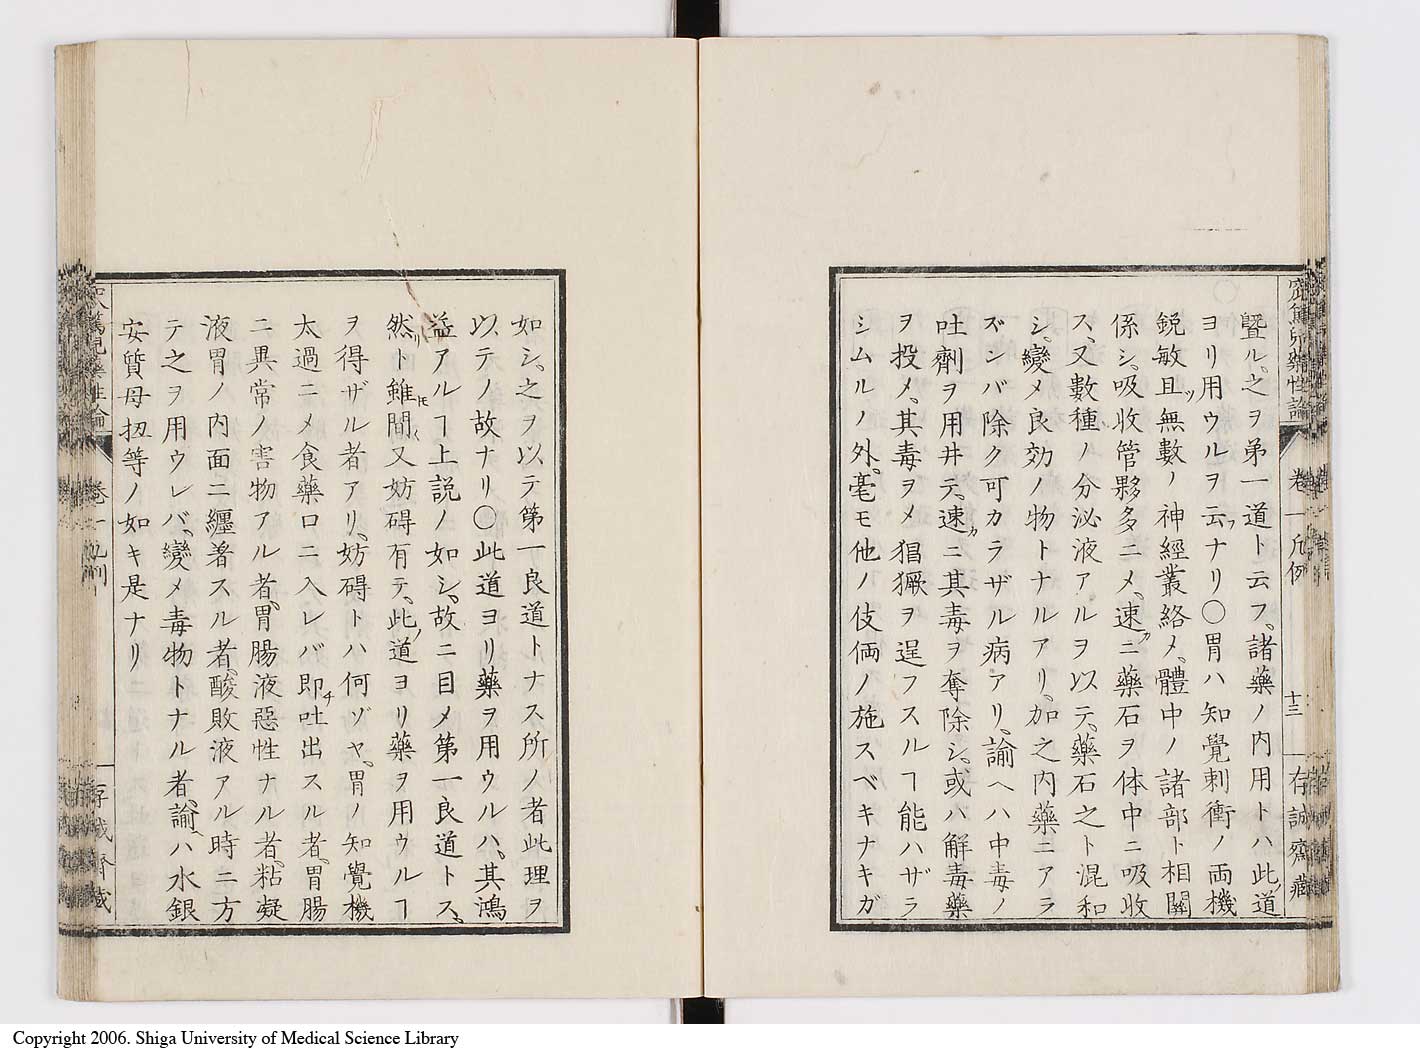 暨ル、之ヲ弟一道ト云フ、諸藥ノ内用トハ此道
ヨリ用ウルヲ云フナリ〇胃ハ知覺刺衝ノ両機
鋭敏且ツ無數ノ神經叢絡メ、體中ノ諸部ト相關
係シ、吸收管夥多ニメ、速カニ藥石ヲ体中ニ吸收
ス、又數種ノ分泌液アルヲ以テ、藥石之ト混和
シ、變メ良効ノ物トナルアリ、加之内藥ニアラ
ズンバ除ク可カラザル病アリ、諭ヘハ中毒ノ
吐劑ヲ用井テ、速カニ其毒ヲ奪除シ、或ハ解毒藥
ヲ投メ、其毒ヲメ猖獗ヲ逞フスルヿ能ハザラ
シムルノ外、毫モ他ノ伎倆ノ施スベキナキガ
卷一 凡例
十三
存誠齋藏
如シ、之ヲ以テ第一良道トナス所ノ者此理ヲ
以テノ故ナリ〇此道ヨリ藥ヲ用ウルハ、其鴻
益アルヿ上説ノ如シ、故ニ目メ第一良道トス、
然リト雖𪜈間〱又妨碍有テ、此ノ道ヨリ藥ヲ用ウルヿ
ヲ得ザル者アリ、妨碍トハ何ゾヤ、胃ノ知覺機
太過ニメ食藥口ニ入レバ即チ吐出スル者、胃腸
ニ異常ノ害物アル者、胃腸液惡性ナル者、粘凝
液胃ノ内面ニ纒著スル者、酸敗液アル時ニ方
テ之ヲ用ウレバ、變メ毒物トナル者、諭ハ水銀
安質母扭等ノ如キ是ナリ